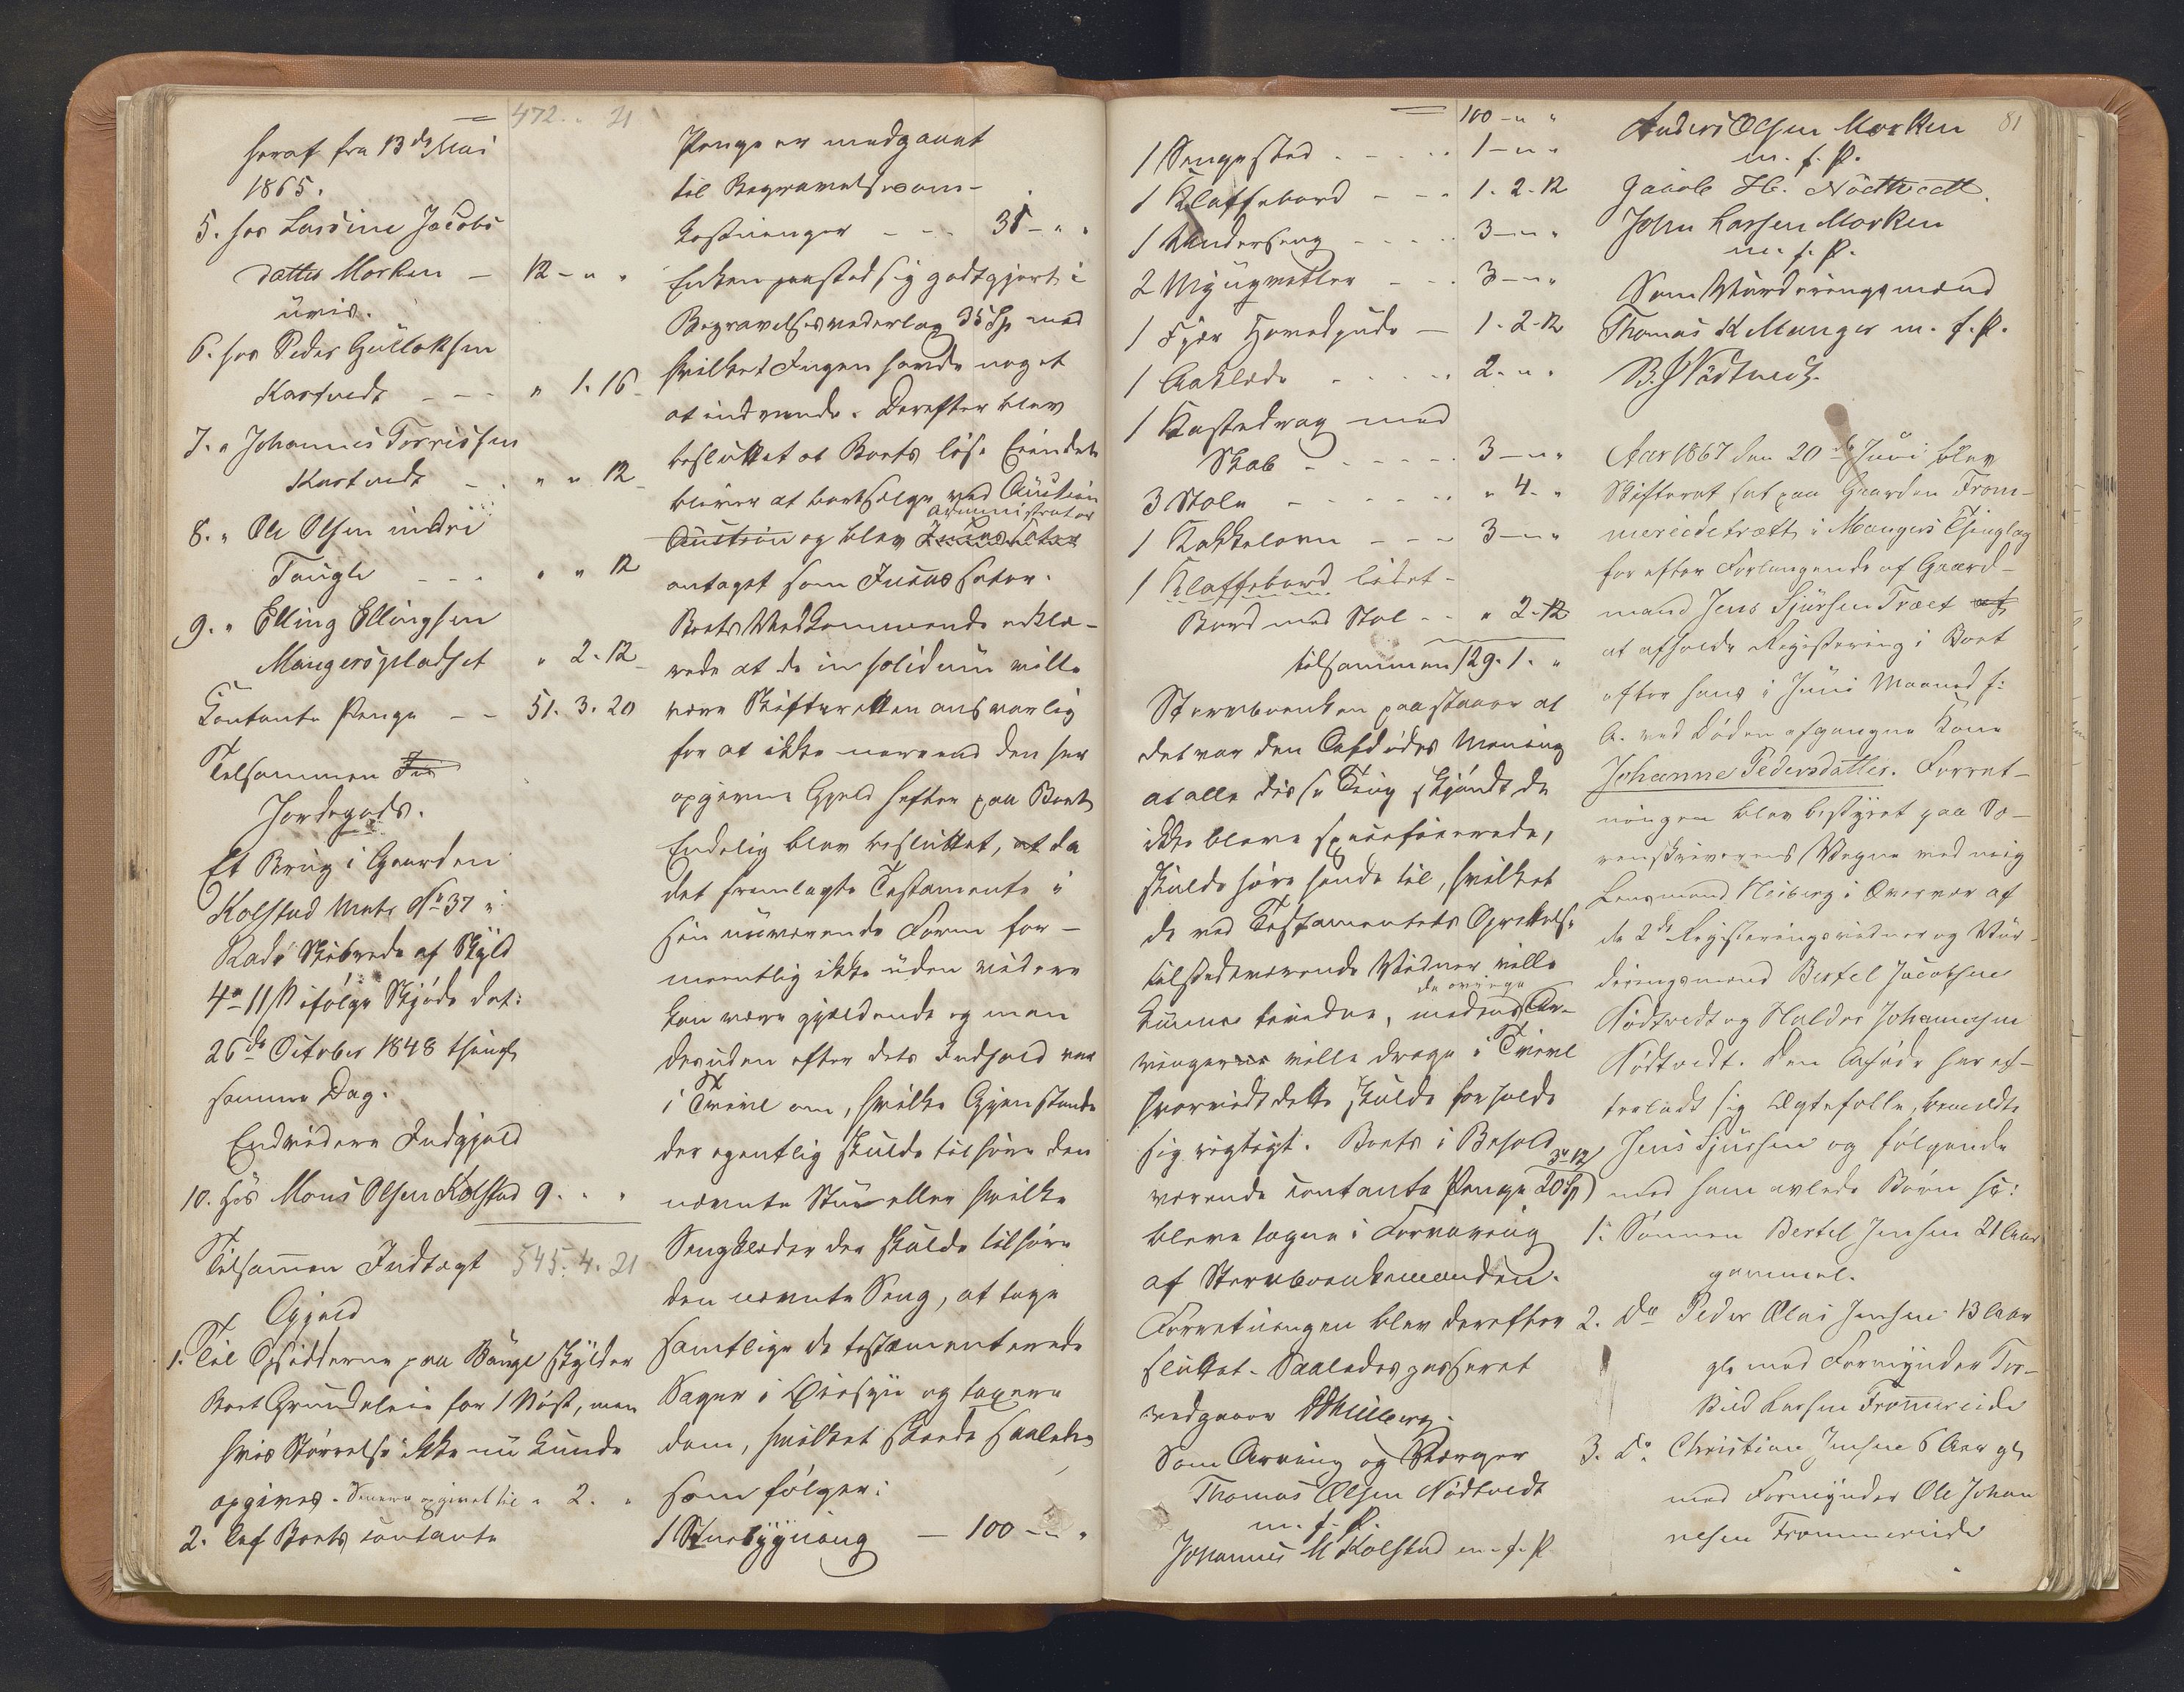 = 472. " 21
heraf fra 13de Mai
1865.
5. hos Lassine Jacobs
datter Morken – 12 – " "
uvis.
6. hos Peder Gulloksen
Kartvedt – – – " 1. 16
7. " Johannes Torrissen
Kartvedt – – " " 12
8. " Ole Olsen indre
Taugle – – – " " 12
9. " Elling Ellingsen
Mangerspladset " 2. 12
Contante Penge – – 51. 3. 20
Tilsammen
Jordegods.
Et Brug i Gaarden
Kolstad Matr No 37 i
Radø Skibrede af Skyld
4 11 ß ifølge Skjøde dat:
26de October 1848 thingl
samme Dag.
Endvidere Indgjeld
10. hos Mons Olsen Kolstad 9. " "
Tilsammen Indtægt 545. 4. 21
Gjæld
1. Til Opsidderne paa Bøuge skylder
Boet Grundeleie for 1 Nøst, men
hvis Størrelse ikke nu kunde
opgives. Senere opgivet til " 2. "
2. Af Boets contante
Penge er medgaaet
til Begravelsesom-
kostninger – – – 35 – " "
Enken paastod sig godtgjort i
Begravelsesvederlag 35 Sp mod
hvilket Ingen havde noget
at indvende. Derefter blev
besluttet at Boets løse Eiendele
bliver at bortsælge ved Auction
administrator
Auction og blev Incassator
antaget som Incassator.
Boets Vedkommende erklæ-
rede at de in solidum ville
være Skifteretten ansvarlig
for at ikke mere end den her
opgivne Gjeld hefter paa Boet
Endelig blev besluttet, at da
det fremlagte Testamente i
sin nuværende Form for-
mentlig ikke uden videre
kan være gjældende og man
desuden efter dets Indhold var
i Tvivl om, hvilke Gjenstande
der egentlig skulde tilhøre den
nævnte Stue eller hvilke
Sengklæder der skulde tilhøre
den nævnte Seng, at tage
samtlige de testamenterede
Sager i Øiesyn og taxere
dem, hvilket skede saaledes
som følger:
1 Stuebygning – 100 – " "
= 100 – " "
1 Sengested . – . . . 1 – " "
1 Klaffebord – – . 1. 2. 12
1 Underseng – . . . 3 – " "
2 Uldtepper – . . 3 – " "
1 Fjær Hovedpude – 1. 2. 12
1 Aaklæde . . . . . 2. " "
1 Kastedrag med
Skab – – – – – – 3 – " "
3 Stole – – – – – " 4. "
1 Kakkelovn – – – 3 – " "
1 Klaffebord lidet –
Bord med Stol – – " 2. 12
tilsammen 129. 1. "
Stervboenken paastaaer at
det var den Afdødes Mening
at alle disse Ting skjøndt de
ikke bleve specificerede,
skulde høre hende til, hvilket
de ved Testamentets Oprettelse
tilstedeværende Vidner ville
de øvrige
kunne bevidne, medens Ar-
vingerne ville drage i Tvivl
hvorvidt dette skulde forholde
sig rigtigt. Boets i Behold
3 12
værende contante Penge 20 Sp)
bleve tagne i Forvaring
af Stervboenkemanden.
Forretningen blev derefter
sluttet. Saaledes passeret
vedgaaer
Som Arving og Værger
Thomas Olsen Nødtvedt
m. f. P.
Johannes M Kolstad m. f. P
Anders Olsen Morken 81
m. f. P.
Jacob H. Nødtvedt
John Larsen Morken
m. f. P.
Som Vurderingsmænd
Thomas K Manger m. f. P.
B. J Nødtvedt.
Aar 1867 den 20de Juni blev
Skifteret sat paa Gaarden From-
mereidetræet i Mangers Thinglag
for efter Forlangende af Gaard-
mand Jens Sjursen Træet af
at afholde Registering i Boet
efter hans i Juni Maaned f:
A. ved Døden afgangne Kone
Johanne Pedersdatter. Forret-
ningen blev bestyret paa So-
renskriverens Vegne ved mig
Lensmand Heiberg i Overvær af
de 2de Registeringsvidner og Vur-
deringsmænd Bertel Jacobsen
Nødtvedt og Haldor Johannesen
Nødtvedt. Den Afdøde har ef-
terladt sig Ægtefælle, bemeldte
Jens Sjursen og følgende
med ham avlede Børn
1. Sønnen Bertel Jensen 21 Aar
gammel.
2. Do Peder Olai Jensen 13 Aar
gl. med Formynder Tor-
kild Larsen Frommereide
3. Do Christian Jensen 6 Aar gl.
med Formynder Ole Johan
nesen Frommereide